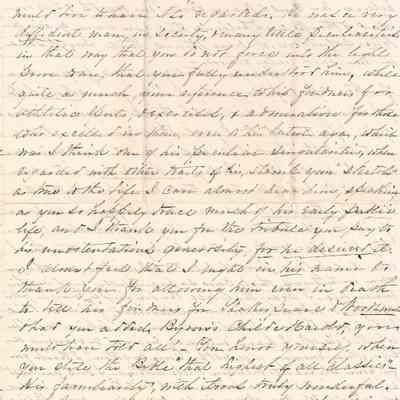 must love to have it so regarded. He was a very
diffident man, in society, & many little peculiarities
in that way that you do not force into the light
prove to me, that you fully understood him, while
quite as much given reference to his fondness for
athletic sports, & exercises, & admiration for those
who excelled in them, even to his latest age, which
was I think one of his peculiar singularities, when
regarded with other traits of his,
as true to the life. I can almost hear him, speaking
as you so happily trace much of his early public
life, and I thank you for the tribute you pay to
his unostentatious generosity, for he deserved it.
I almost feel that I might in his name to
thank you for allowing him even in death
to tell his fondness for Shakespeare & Woodsman
& had you added Byron's Childe Harold, you
would have told all. You know yourself, when
you state the Bible "that highest of all classics"
his familiarity, with it was truly wonderful.